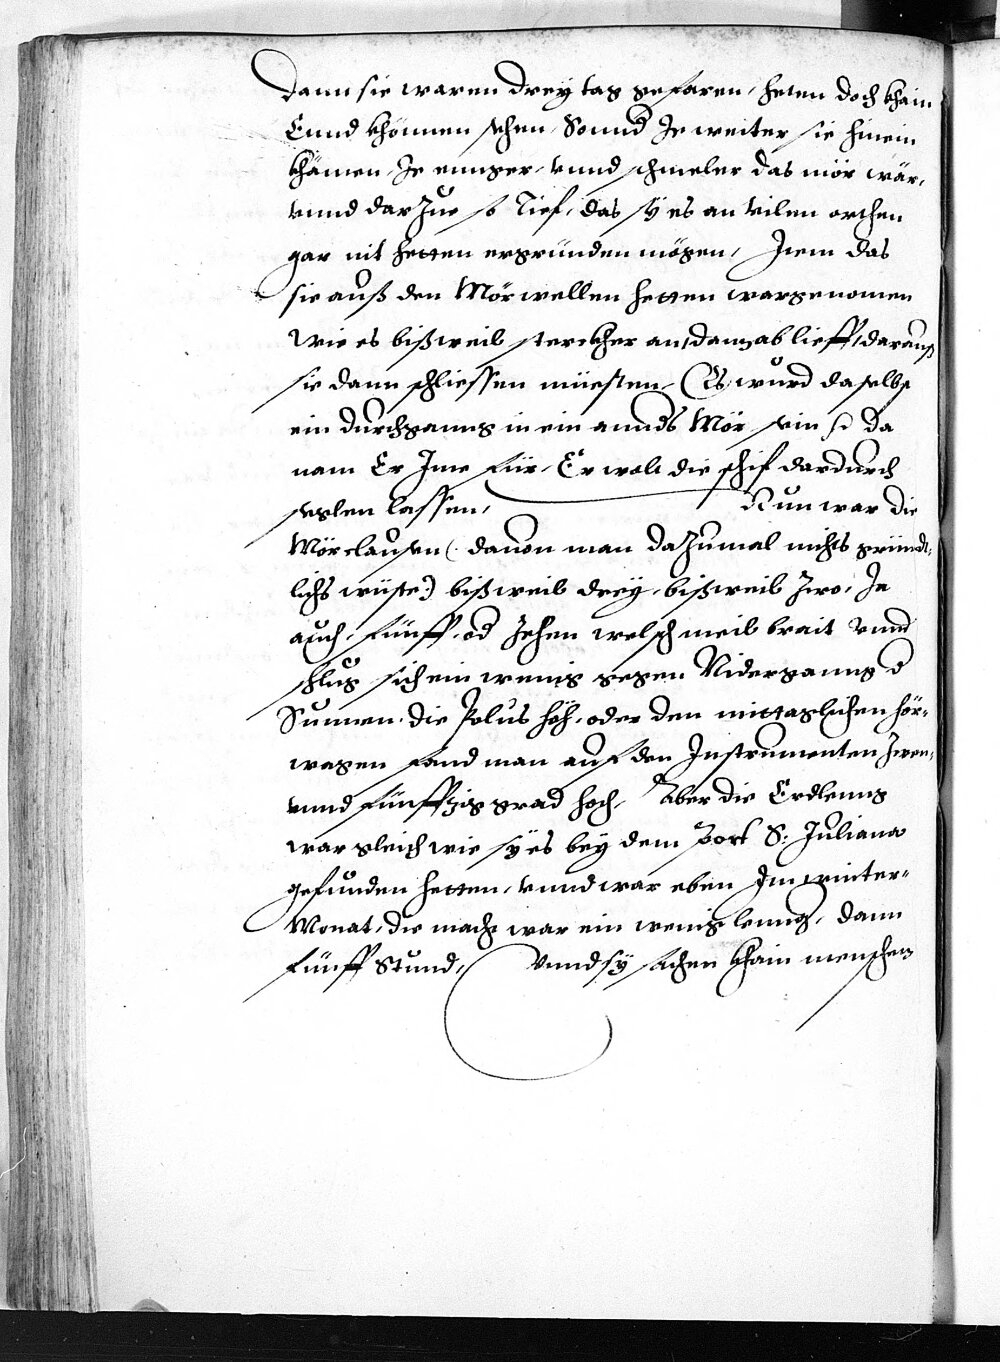 Dann sie waren drey tag gefaren, heten doch khain
Ennd khönnen sehen, Sonnd Je weiter sie hinein
khämen, Je ennger, vnnd schmeler das mör wär,
vnnd darZue so Tief, das sÿ es an vilen orthen
gar nit hetten ergründen mögen, Item das
sie auß den Mörwellen hetten wargenomen
wie es bißweil sterckher an, dann ab lieff, darauß
sie dann schliessen müesten, Es wurd daselbs
ein durchganng in ein annds Mör sein so da
nam Er Ime für, Er wolt die schif dardurch
seglen lassen, Nun war die
Mörclausen (dauon man daZumal nichts gründt-
lichs wüste) bißweil drey, bißweil Zwo, Ja
auch, fünff, od Zehen welsch meil brait vnnd
schlug sich ein wenig gegen Niderganng d
Sunnen, die Polus höh, oder den mittaglichen hör-
wagen fand man auf den Instrumenten Zwen-
vnnd fünffzig grad hoch, Aber die Erdleng
war gleich wie sÿ es bey dem Port S: Juliana
gefunden hetten, vnnd war eben Im winter-
Monat, die nacht war ein wenig lennger, dann
fünff Stund, Vnnd sÿ sahen khain menschen